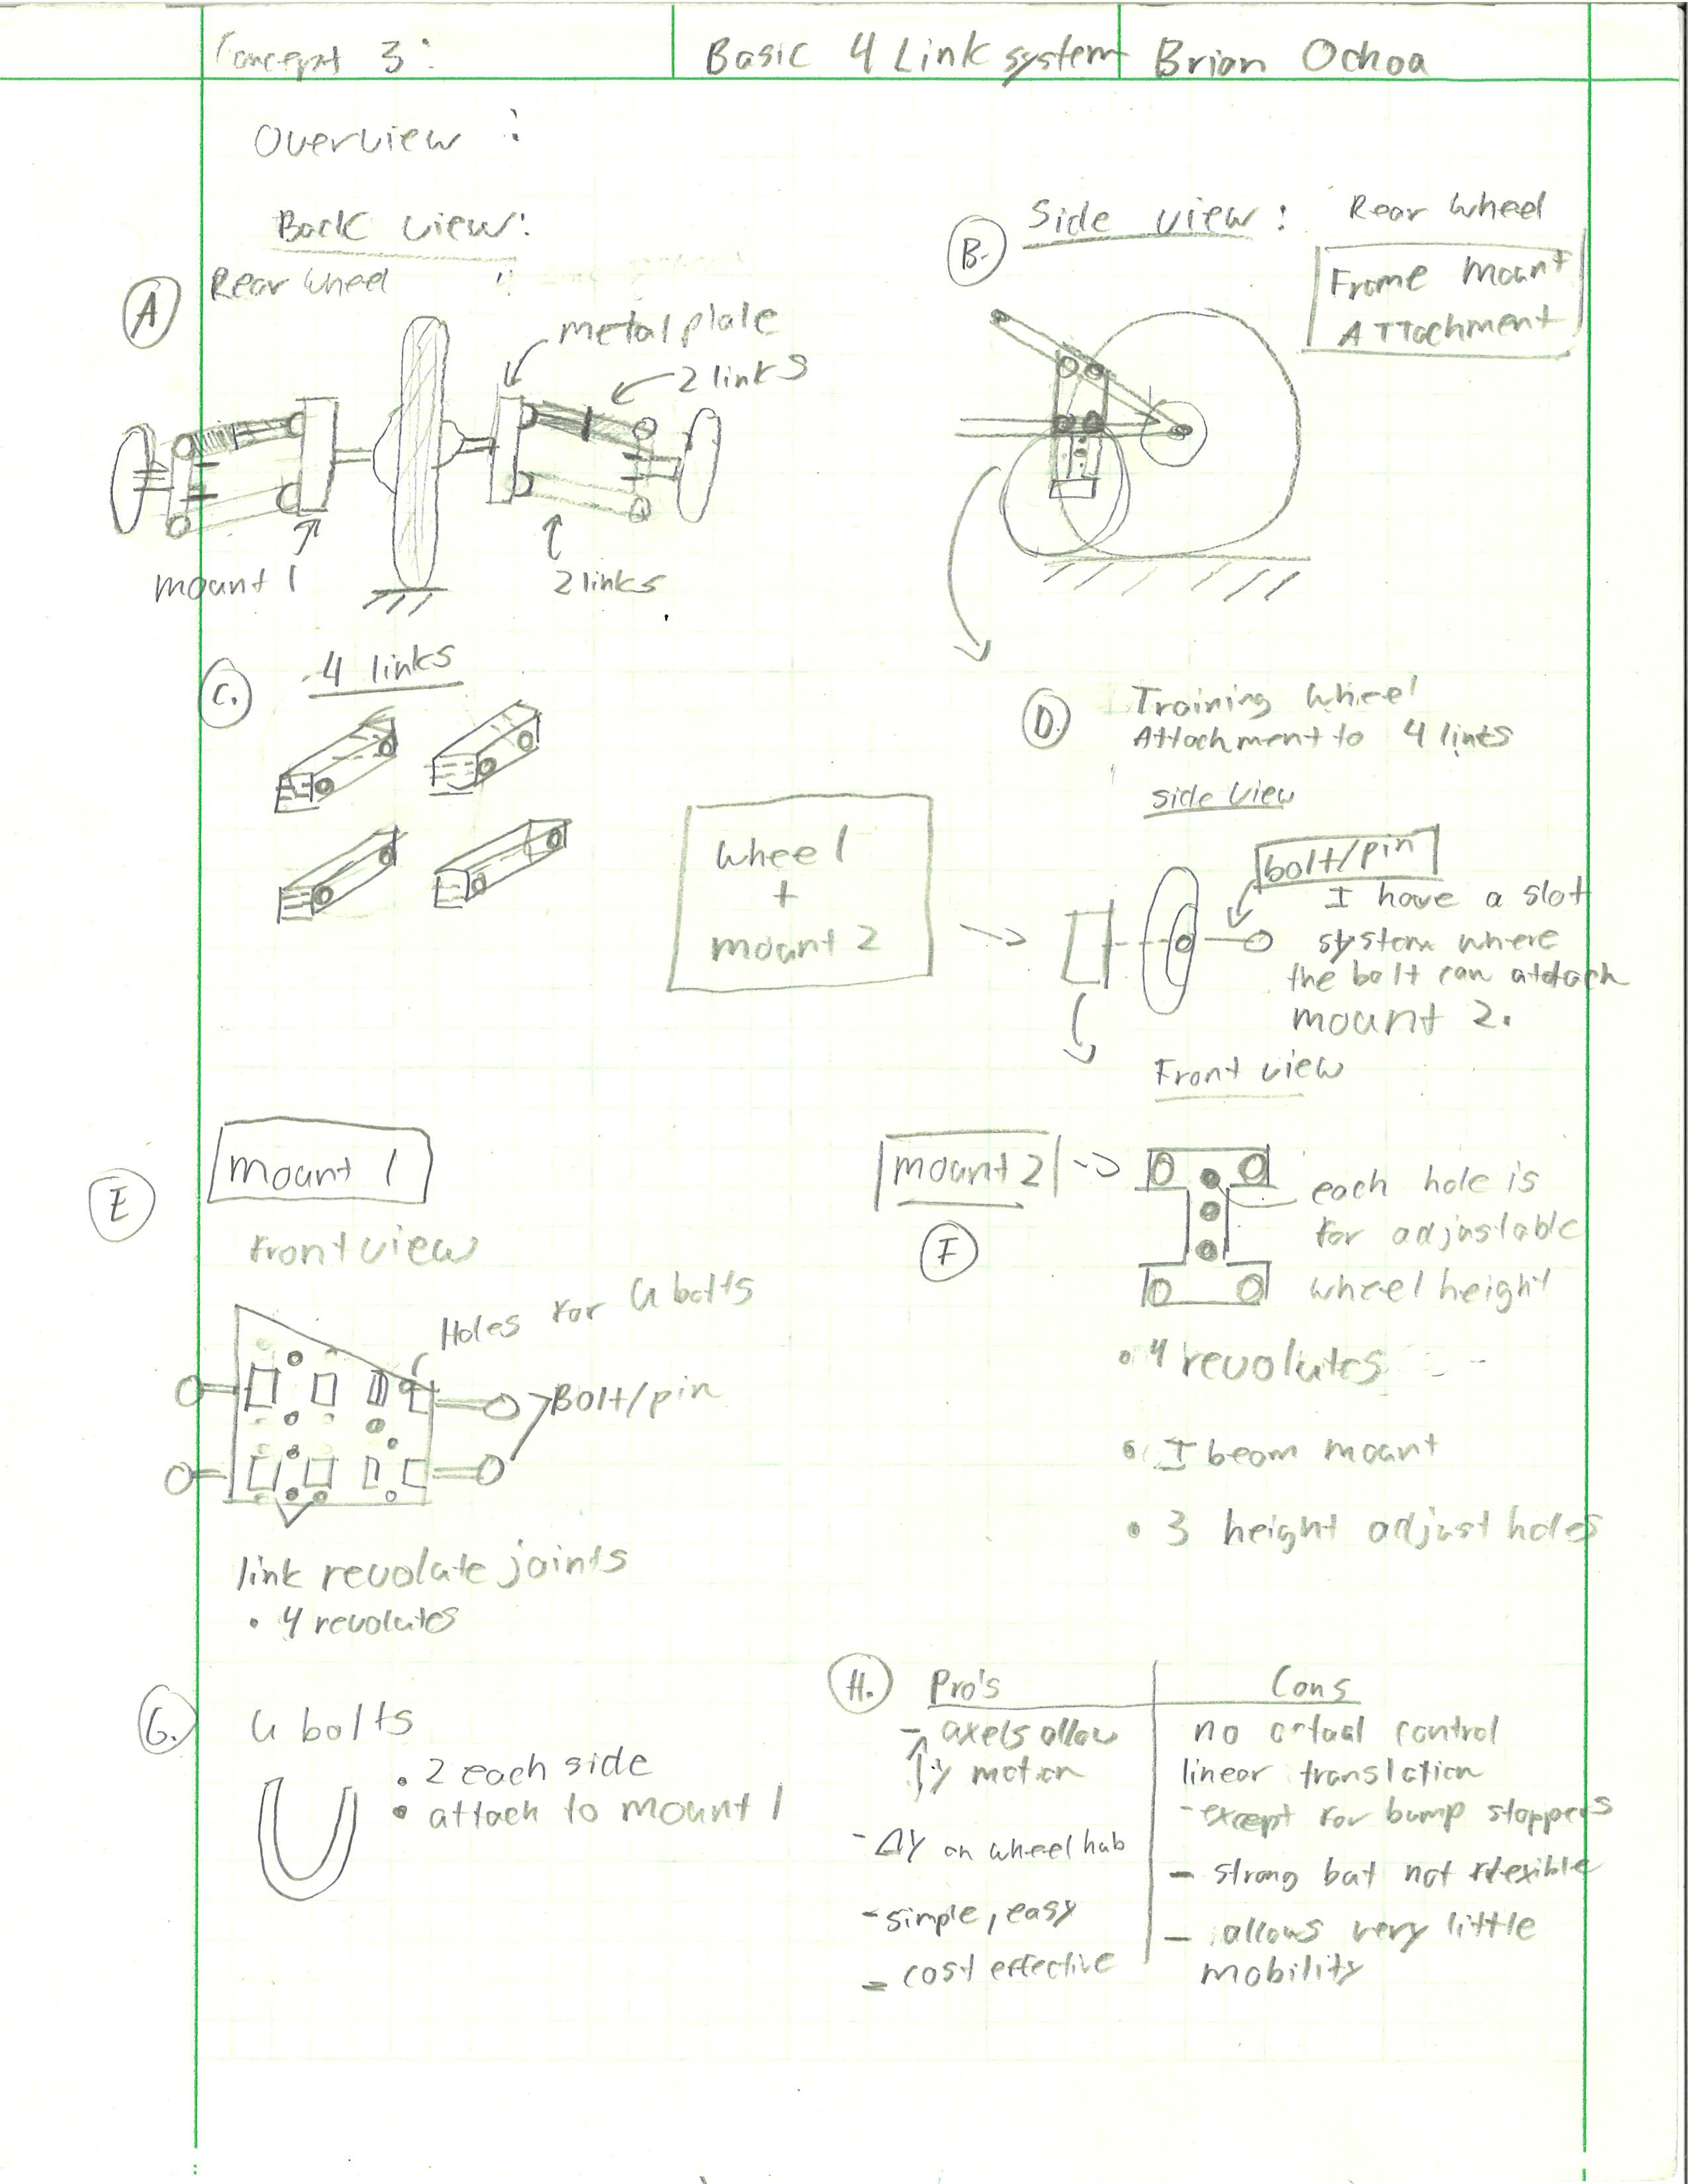 Concept 3:
Basic 4 Link system
Brian Ochoa
Overview :
Back view:
Rear wheel
A
metal plate
2 links
mount 1
2 links
B.
Side view : Rear wheel
Frame mount
Attachment
C.
4 links
D.
Training wheel
Attachment to 4 links
side view
wheel
+
mount 2
bolt/pin
I have a slot
system where
the bolt can attach
mount 2.
Front view
E
mount 1
Front view
Holes for U bolts
Bolt/pin
link revolute joints
• 4 revolutes
mount 2
F
each hole is
for adjustable
wheel height
• 4 revolutes
• I beam mount
• 3 height adjust holes
G.
U bolts
• 2 each side
• attach to mount 1
H.
Pro's
- axels allow
y motion
- ΔY on wheel hub
- simple, easy
- cost effective
Cons
no actual control
linear translation
- except for bump stoppers
- strong but not flexible
- allows very little
mobility